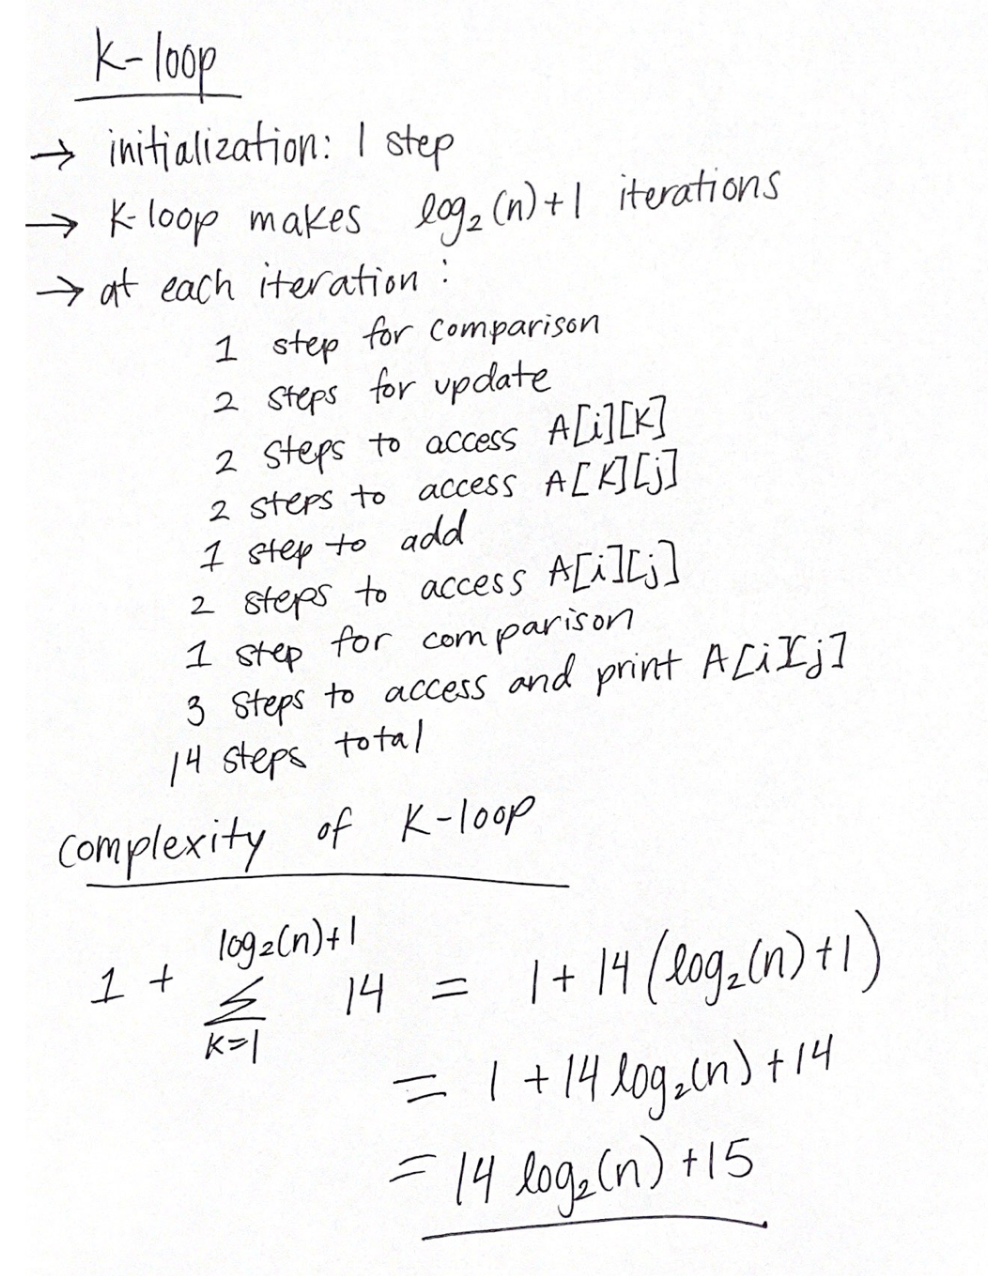 K-loop
→ initialization: 1 step
→ K-loop makes log₂(n)+1 iterations
→ at each iteration:
1 step for comparison
2 steps for update
2 steps to access A[i][K]
2 steps to access A[K][j]
1 step to add
2 steps to access A[i][j]
1 step for comparison
3 steps to access and print A[i][j]
14 steps total
complexity of K-loop
1 + Σ_{K=1}^{log₂(n)+1} 14 = 1 + 14(log₂(n)+1)
= 1 + 14 log₂(n) + 14
= 14 log₂(n) + 15